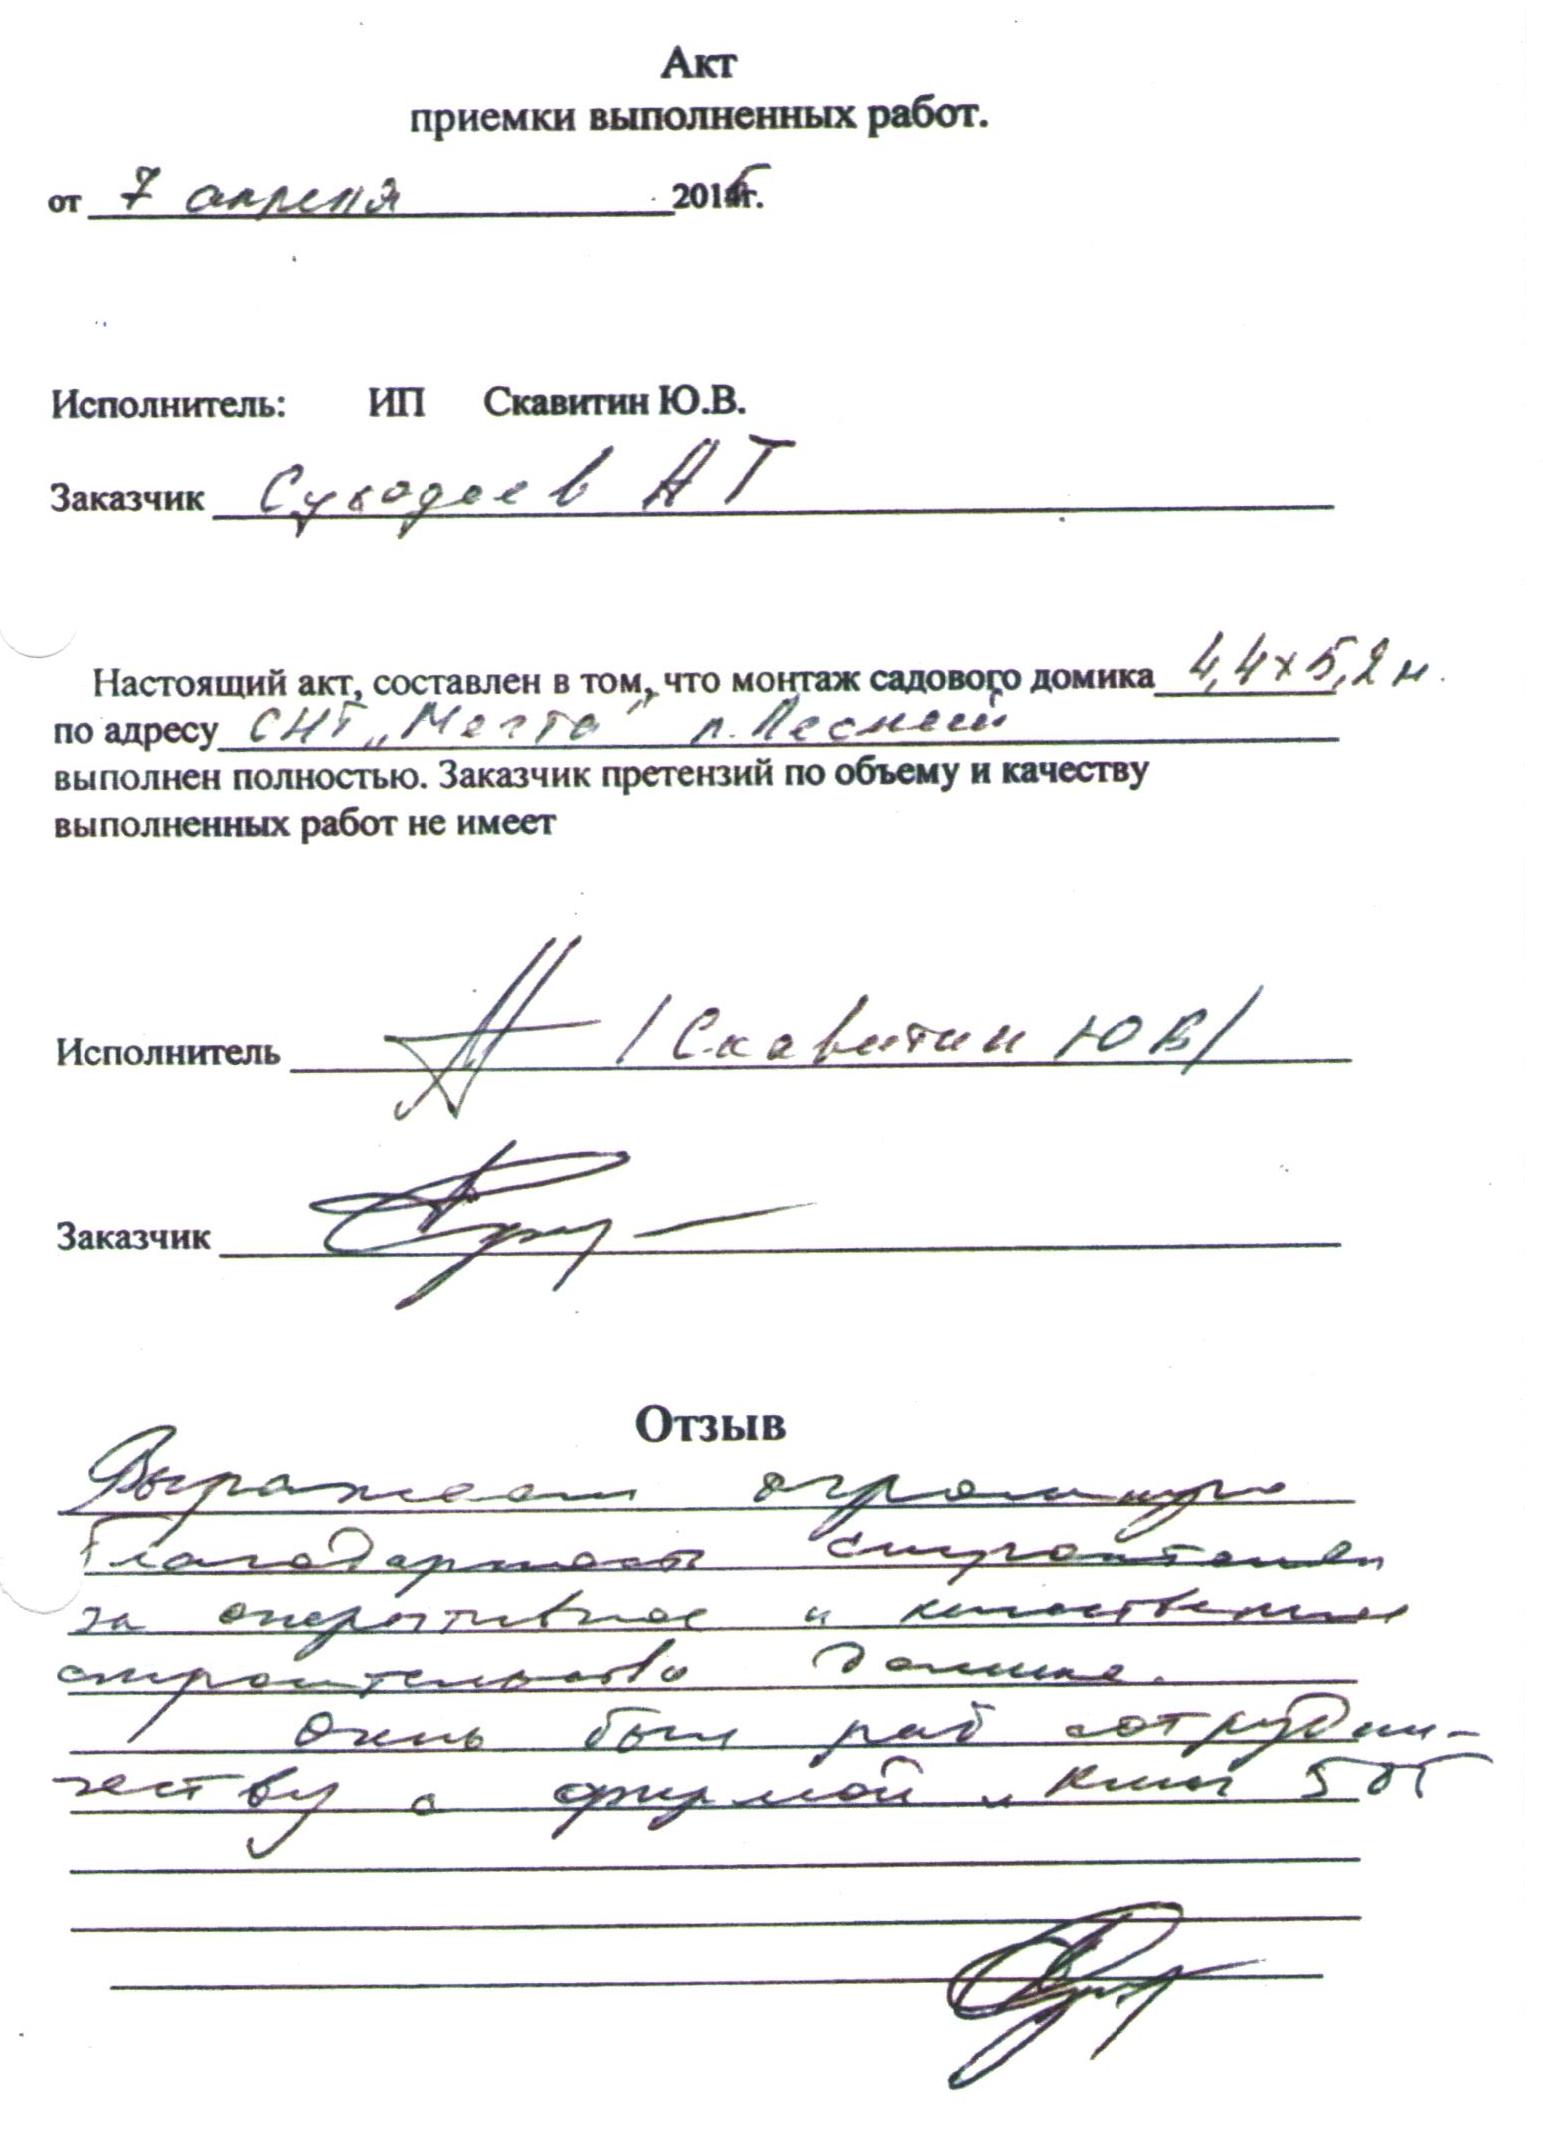 Акт
приемки выполненных работ.
от 7 апреля 2015г.
Исполнитель: ИП Скавитин Ю.В.
Заказчик Суходоев А Т
Настоящий акт, составлен в том, что монтаж садового домика 4,4х5,2 м.
по адресу СНТ „Мечта" п. Лесной
выполнен полностью. Заказчик претензий по объему и качеству
выполненных работ не имеет
Исполнитель /Скавитин Ю В/
Заказчик
Отзыв
Выражаем огромную
благодарность строителям
за оперативное и качественное
строительство домика.
Очень был рад сотрудни-
честву с фирмой „